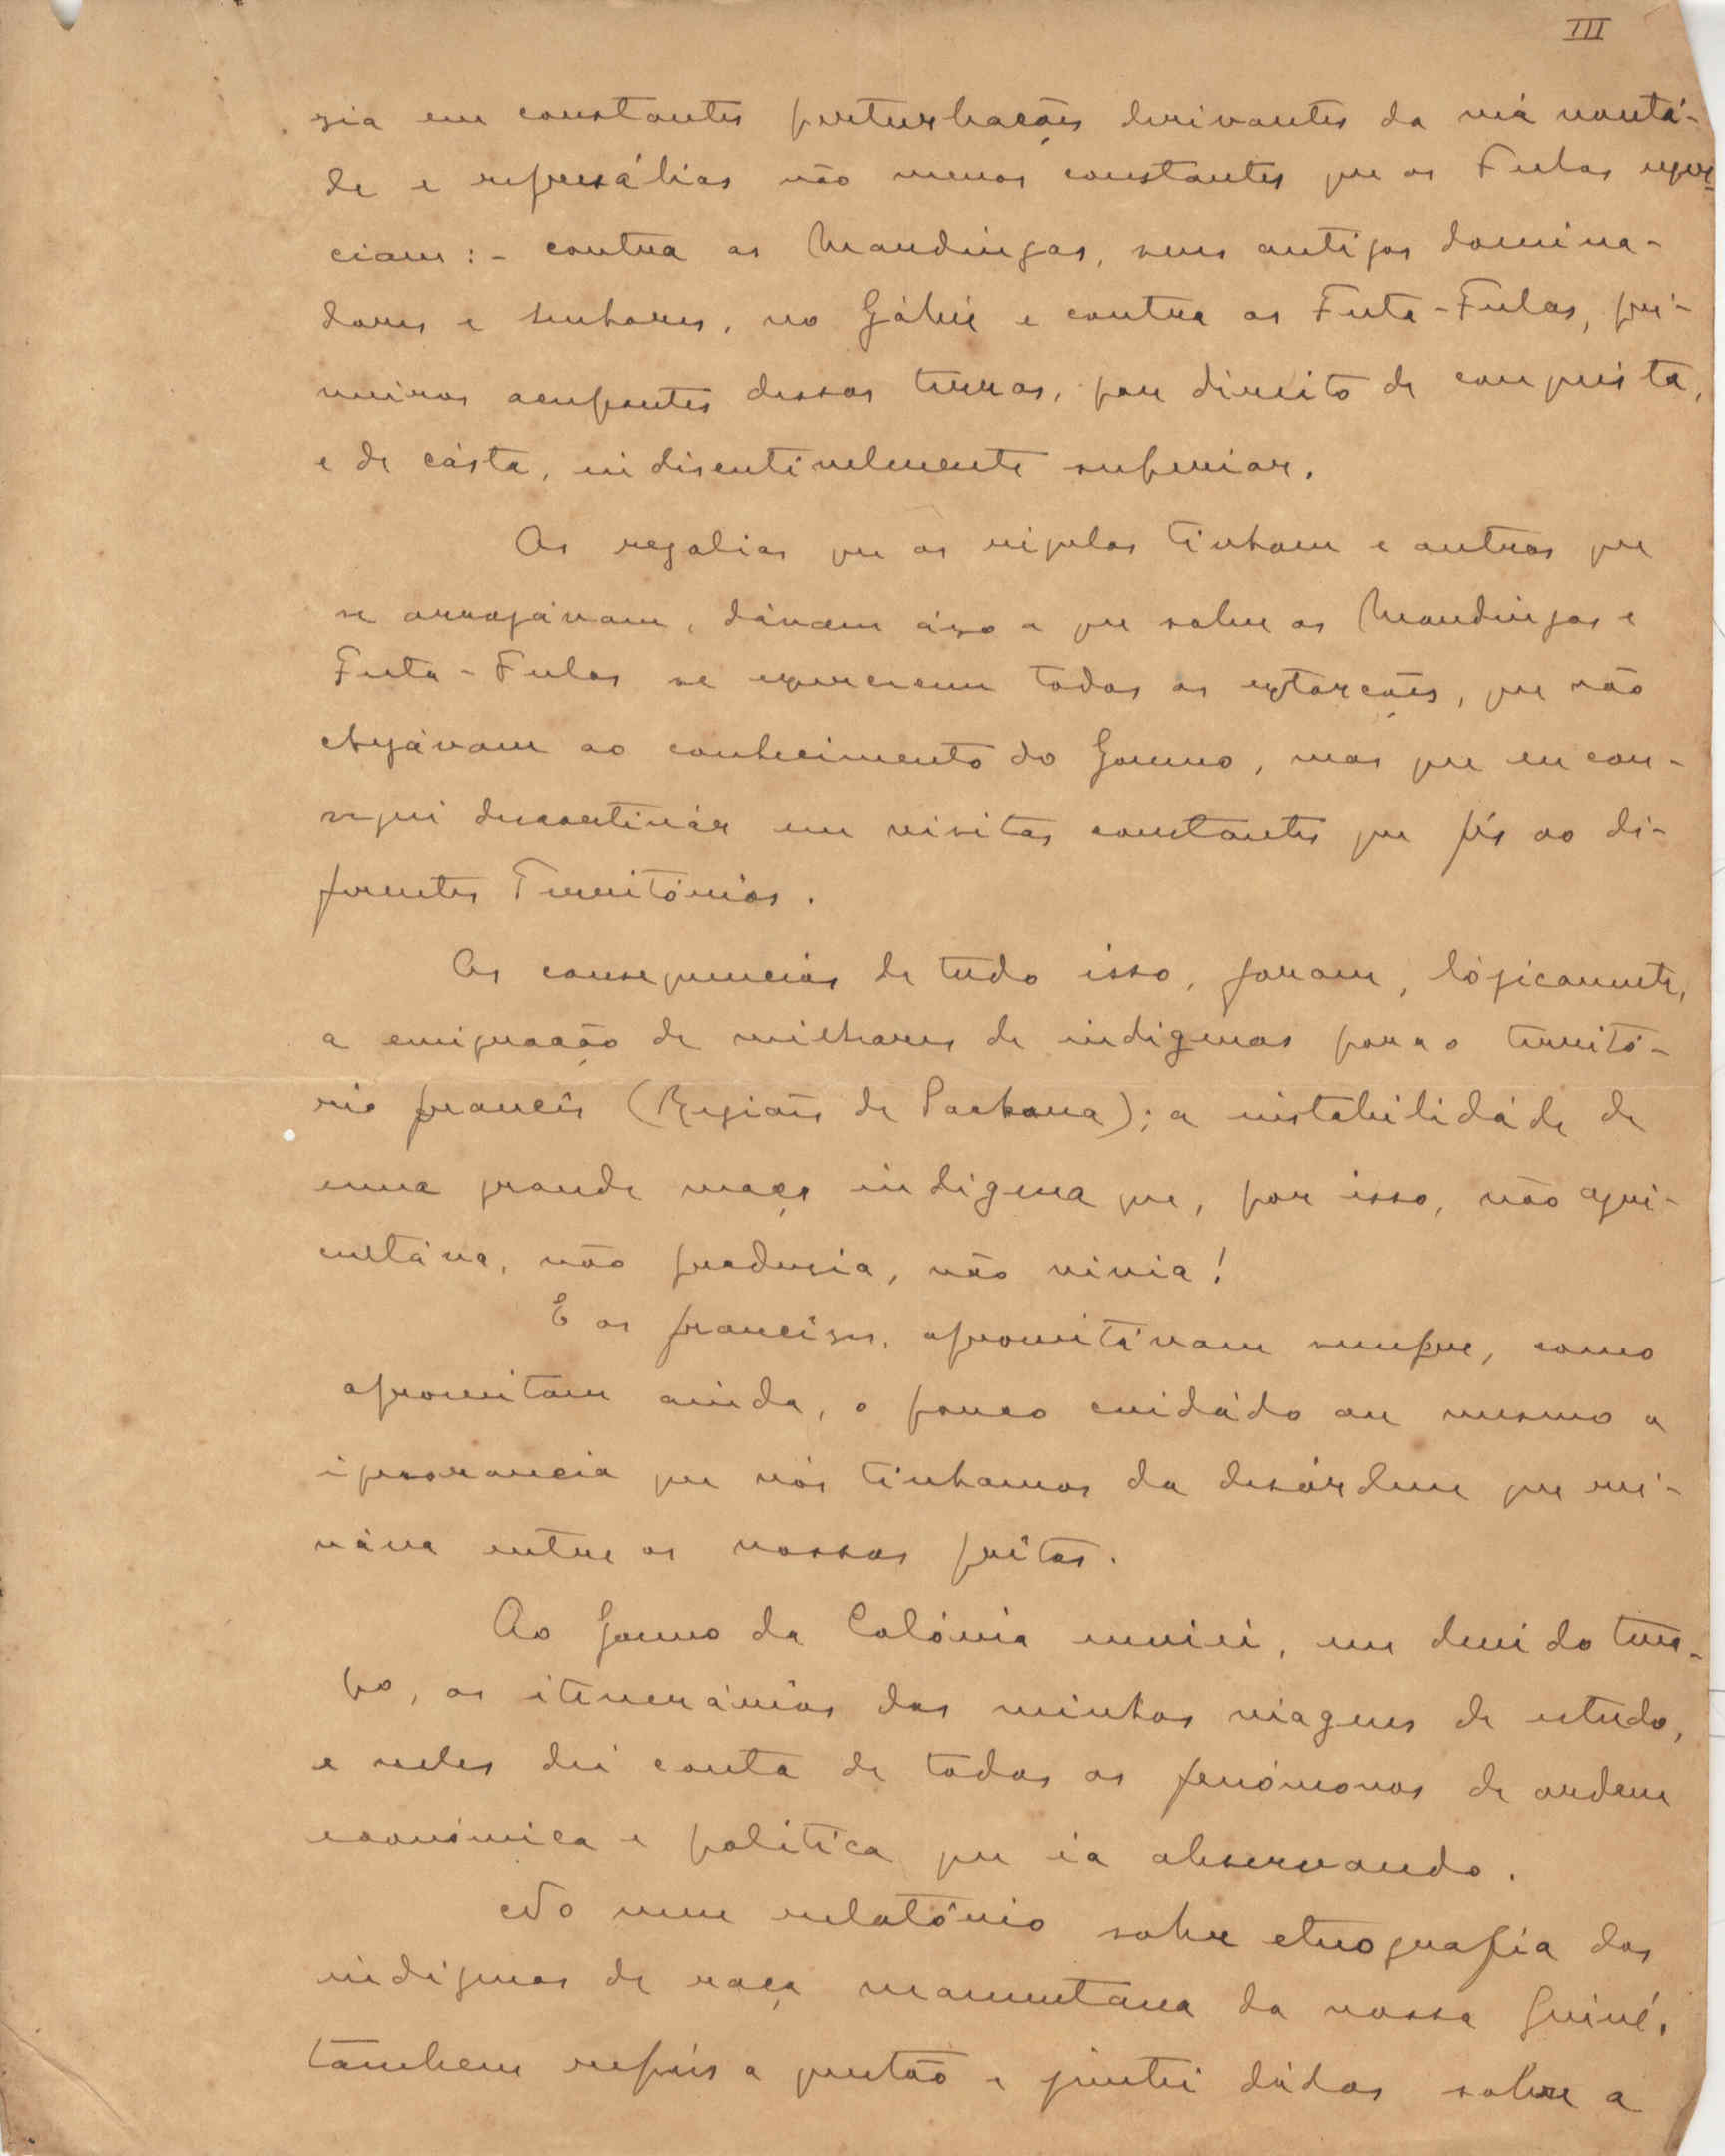 III
zia em constantes perturbações derivantes da má vontá-
de e represálias não menos constantes que os Fulas exer-
ciam: - contra os Mandingas, seus antigos domina-
dores e senhores, no Gábú e contra os Futa-Fulas, pri-
meiros ocupantes dessas terras, por direito de conquista,
e de cásta, indiscutivelmente superior.
As regalias que os régulos tinham e outras que
se arrogávam, dávam áso a que sobre os Mandingas e
Futa-Fulas se exercessem todas as extorcões, que não
chegávam ao conhecimento do Governo, mas que eu con-
segui descortinár em visitas constantes que fiz ao di-
ferentes Territórios.
As consequencias de tudo isso, foram, lógicamente,
a emigração de milhares de indigenas para o territó-
rio francês (Regiões de Pachana); a instabilidáde de
uma grande maça indigena que, por isso, não agri-
cultáva, não produsia, não vivia!
E os francêses, aproveitávam sempre, como
aproveitam ainda, o pouco cuidádo ou mesmo a
ignorancia que nós tinhamos da desórdem que rei-
náva entre os nossos prêtos.
Ao Governo da Colónia enviei, em devido tem-
po, os itenerários das minhas viagens de estudo,
e neles dei conta de todos os fenómonos de ordem
económica e politica que ia observando.
No meu relatório sobre etnografia dos
indigenas de raça maometana da nossa Guiné,
tambem repús a questão e juntei dádos sobre a